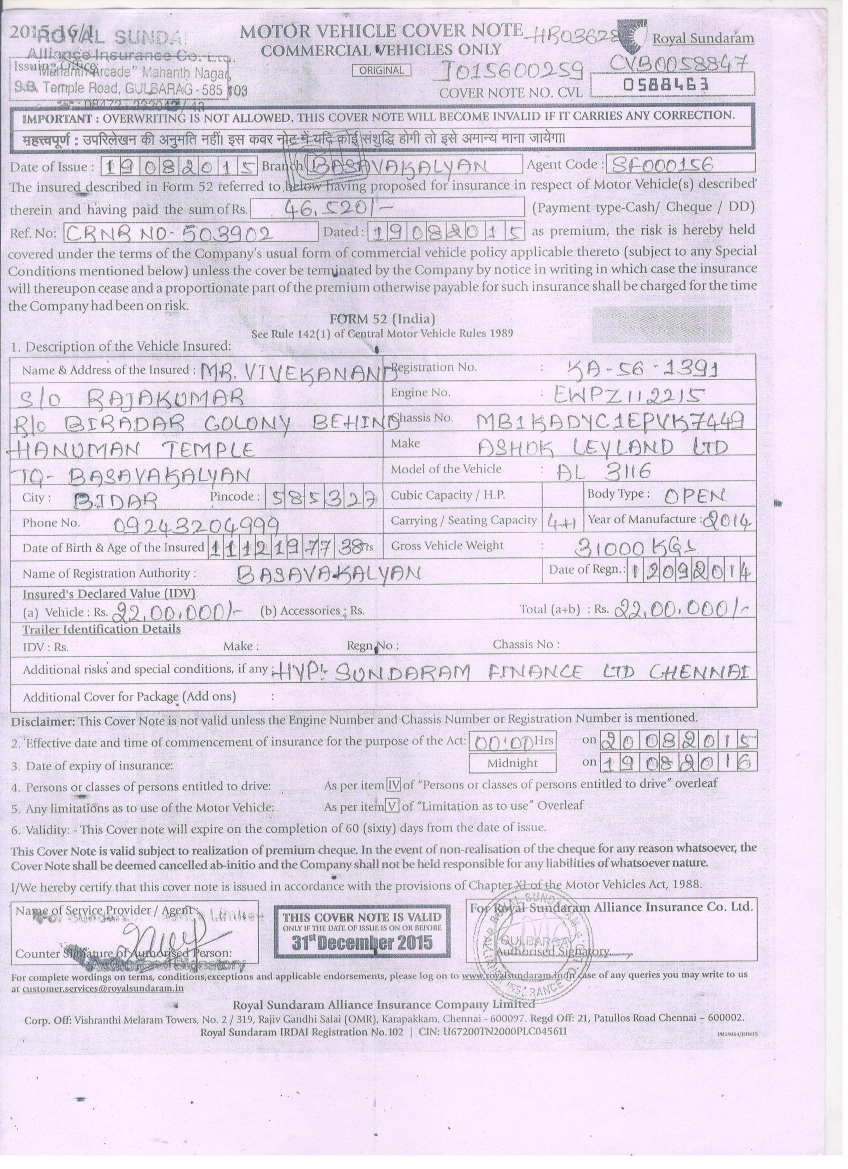 2015-16/1 MOTOR VEHICLE COVER NOTE HR03628 Royal Sundaram
ROYAL SUNDA
Alliance Insurance Co. Ltd. COMMERCIAL VEHICLES ONLY
Issuing Office Arcade" Mahanth Nagar, ORIGINAL J015600259 CVB0058847
S.B. Temple Road, GULBARAG - 585 103 COVER NOTE NO. CVL 0588463
IMPORTANT : OVERWRITING IS NOT ALLOWED. THIS COVER NOTE WILL BECOME INVALID IF IT CARRIES ANY CORRECTION.
महत्त्वपूर्ण : उपरिलेखन की अनुमति नहीं। इस कवर नोट में यदि कोई संशुद्धि होगी तो इसे अमान्य माना जायेगा।
Date of Issue : 19082015 Branch BASAVAKALYAN Agent Code : SF000156
The insured described in Form 52 referred to below having proposed for insurance in respect of Motor Vehicle(s) described
therein and having paid the sum of Rs. 46,520/- (Payment type-Cash/ Cheque / DD)
Ref. No: CRNR NO- 503902 Dated : 19082015 as premium, the risk is hereby held
covered under the terms of the Company's usual form of commercial vehicle policy applicable thereto (subject to any Special
Conditions mentioned below) unless the cover be terminated by the Company by notice in writing in which case the insurance
will thereupon cease and a proportionate part of the premium otherwise payable for such insurance shall be charged for the time
the Company had been on risk.
FORM 52 (India)
See Rule 142(1) of Central Motor Vehicle Rules 1989
1. Description of the Vehicle Insured:
Name & Address of the Insured : MR. VIVEKANAND Registration No. : KA-56-1391
S/o RAJAKUMAR Engine No. : EWPZ112215
R/o BIRADAR COLONY BEHIND Chassis No. MB1KADYC1EPVK7449
HANUMAN TEMPLE Make ASHOK LEYLAND LTD
TQ- BASAVAKALYAN Model of the Vehicle : AL 3116
City : BIDAR Pincode : 585327 Cubic Capacity / H.P. Body Type : OPEN
Phone No. 09243204999 Carrying / Seating Capacity 4+1 Year of Manufacture : 2014
Date of Birth & Age of the Insured 11121977 38Yrs Gross Vehicle Weight : 31000 KGS
Name of Registration Authority : BASAVAKALYAN Date of Regn.: 1292014
Insured's Declared Value (IDV)
(a) Vehicle : Rs. 22,00,000/- (b) Accessories : Rs. Total (a+b) : Rs. 22,00,000/-
Trailer Identification Details
IDV : Rs. Make : Regn No : Chassis No :
Additional risks and special conditions, if any : HYP: SUNDARAM FINANCE LTD CHENNAI
Additional Cover for Package (Add ons) :
Disclaimer: This Cover Note is not valid unless the Engine Number and Chassis Number or Registration Number is mentioned.
2. Effective date and time of commencement of insurance for the purpose of the Act: 00:00 Hrs on 20082015
3. Date of expiry of insurance: Midnight on 19082016
4. Persons or classes of persons entitled to drive: As per item IV of "Persons or classes of persons entitled to drive" overleaf
5. Any limitations as to use of the Motor Vehicle: As per item V of "Limitation as to use" Overleaf
6. Validity: - This Cover note will expire on the completion of 60 (sixty) days from the date of issue.
This Cover Note is valid subject to realization of premium cheque. In the event of non-realisation of the cheque for any reason whatsoever, the
Cover Note shall be deemed cancelled ab-initio and the Company shall not be held responsible for any liabilities of whatsoever nature.
I/We hereby certify that this cover note is issued in accordance with the provisions of Chapter XI of the Motor Vehicles Act, 1988.
Name of Service Provider / Agent: THIS COVER NOTE IS VALID For Royal Sundaram Alliance Insurance Co. Ltd.
ONLY IF THE DATE OF ISSUE IS ON OR BEFORE
31st December 2015 GULBARGA
Counter Signature of Authorised Person: Authorised Signatory
For complete wordings on terms, conditions,exceptions and applicable endorsements, please log on to www.royalsundaram.in In case of any queries you may write to us
at customer.services@royalsundaram.in
Royal Sundaram Alliance Insurance Company Limited
Corp. Off: Vishranthi Melaram Towers, No. 2 / 319, Rajiv Gandhi Salai (OMR), Karapakkam, Chennai - 600097. Regd Off: 21, Patullos Road Chennai - 600002.
Royal Sundaram IRDAI Registration No.102 | CIN: U67200TN2000PLC045611